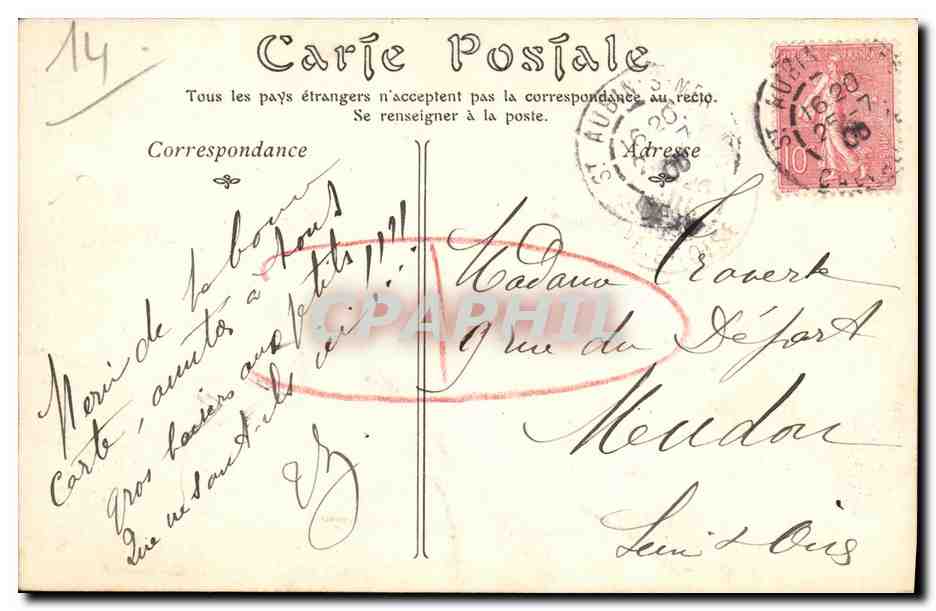 14
Carte Postale
Tous les pays étrangers n'acceptent pas la correspondance au recto.
Se renseigner à la poste.
Correspondance
Adresse
ST AUBIN S MER
16 20
25 -7
08
ST AUBIN
16 20
25 -7
08
10
Merci de la bonne
carte, amitiés à tous
gros baisers aux petits !!!!
Que ne sont-ils ici !
Madame Travers
9 rue du Départ
Meudon
Seine & Oise
CPAPHIL